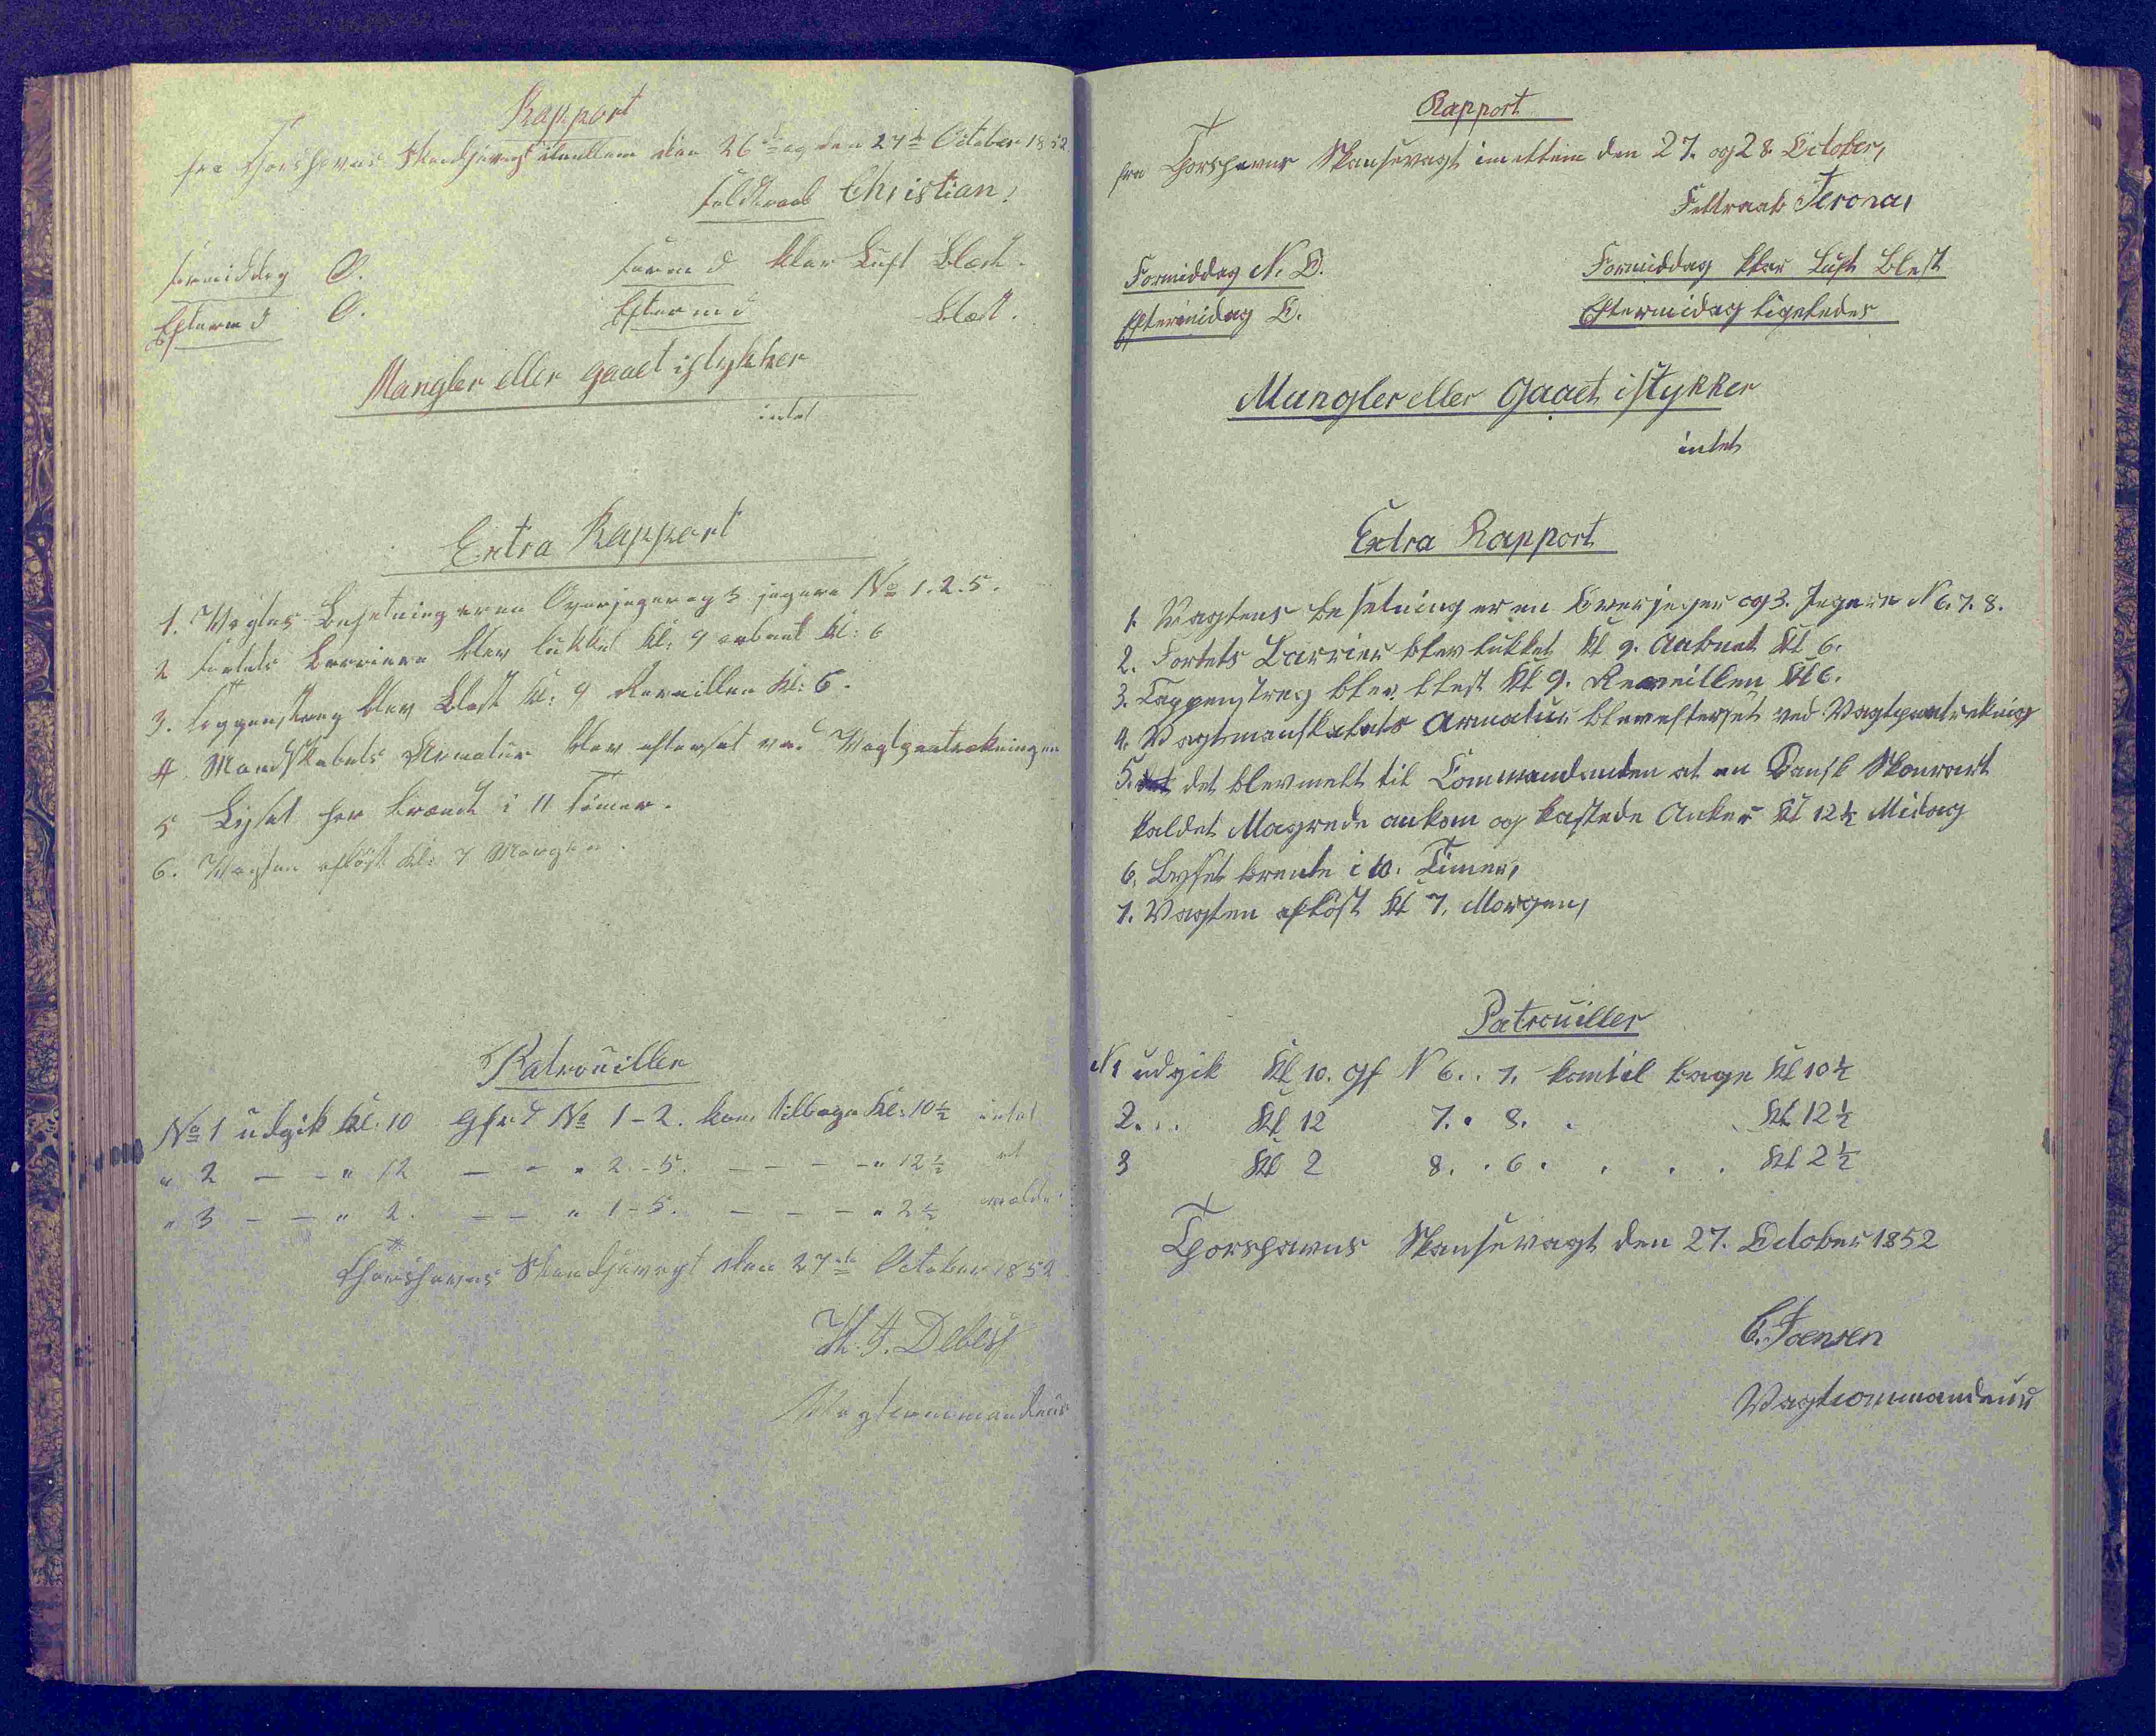 Rapport
fra Thorshavns Skandsevagt imellem den 26de og den 27de October 1852
Feldtraab Christian,
Formiddag O. Formd klar Luft Blæst.
Efterm d O. Efterm d Blæst.
Mangler eller gaaet istykker
intet
Extra Rapport
1. Vagtens Besetning er en Overjeger og 3 jegere No 1. 2. 5.
2 Fortets Barriere blev lukket Kl: 9 aabnet Kl: 6
3. Tappenstreg blev Blæst Kl: 9 Reveillen Kl: 6.
4. Mandskabets Armatur blev efterset ved Vagtparatrækningen
5 Lyset har brændt i 11 Timer.
6. Vagten afløst Kl: 7 Morgen.
Patrouiller
No 1 udgik Kl: 10 Gefr No 1-2. kom tilbage Kl: 10½ intet
" 2 — — " 12 — — " 2-5. — — — " 12½ at
" 3 — — " 2. — — " 1-5. — — — " 2½ melde
Thorshavns Skandsevagt den 27de October 1852
H. J. Debess
Vagtcommandeur
Rapport
fra Thorshavns Skansevagt imellem den 27. og 28. October,
Feltraab Verona,
Formiddag N. O. Formiddag klar Luft Blest
Eftermidag O. Eftermidag ligeledes
Mangler eller Gaaet istykker
intet
Extra Rapport
1. Vagtens besetning er en Overjeger og 3. Jegere N 6. 7. 8.
2. Fortets Barrier blev lukket Kl 9. Aabnet Kl 6.
3. Tappenstreg blev blest Kl 9. Reveillen Kl 6.
4. Vagtmanskabets Armatur blev efterset ved Vagtparatrekning
5. det blev melt til Commandanten at en Dansk Skonnert
kaldet Magrede ankom og kastede Anker Kl 12½ Midag
6. Lyset brente i 10. Timer,
7. Vagten afløst Kl 7. Morgen,
Patrouiller
N1 udgik Kl 10. Gf N 6. . 7. kom til bage Kl 10½
2. . . Kl 12 7. . 8. . . Kl 12½
3 Kl 2 8. . 6 . . . . Kl 2½
Thorshavns Skansevagt den 27. October 1852
C. Joensen
Vagtcommandeur